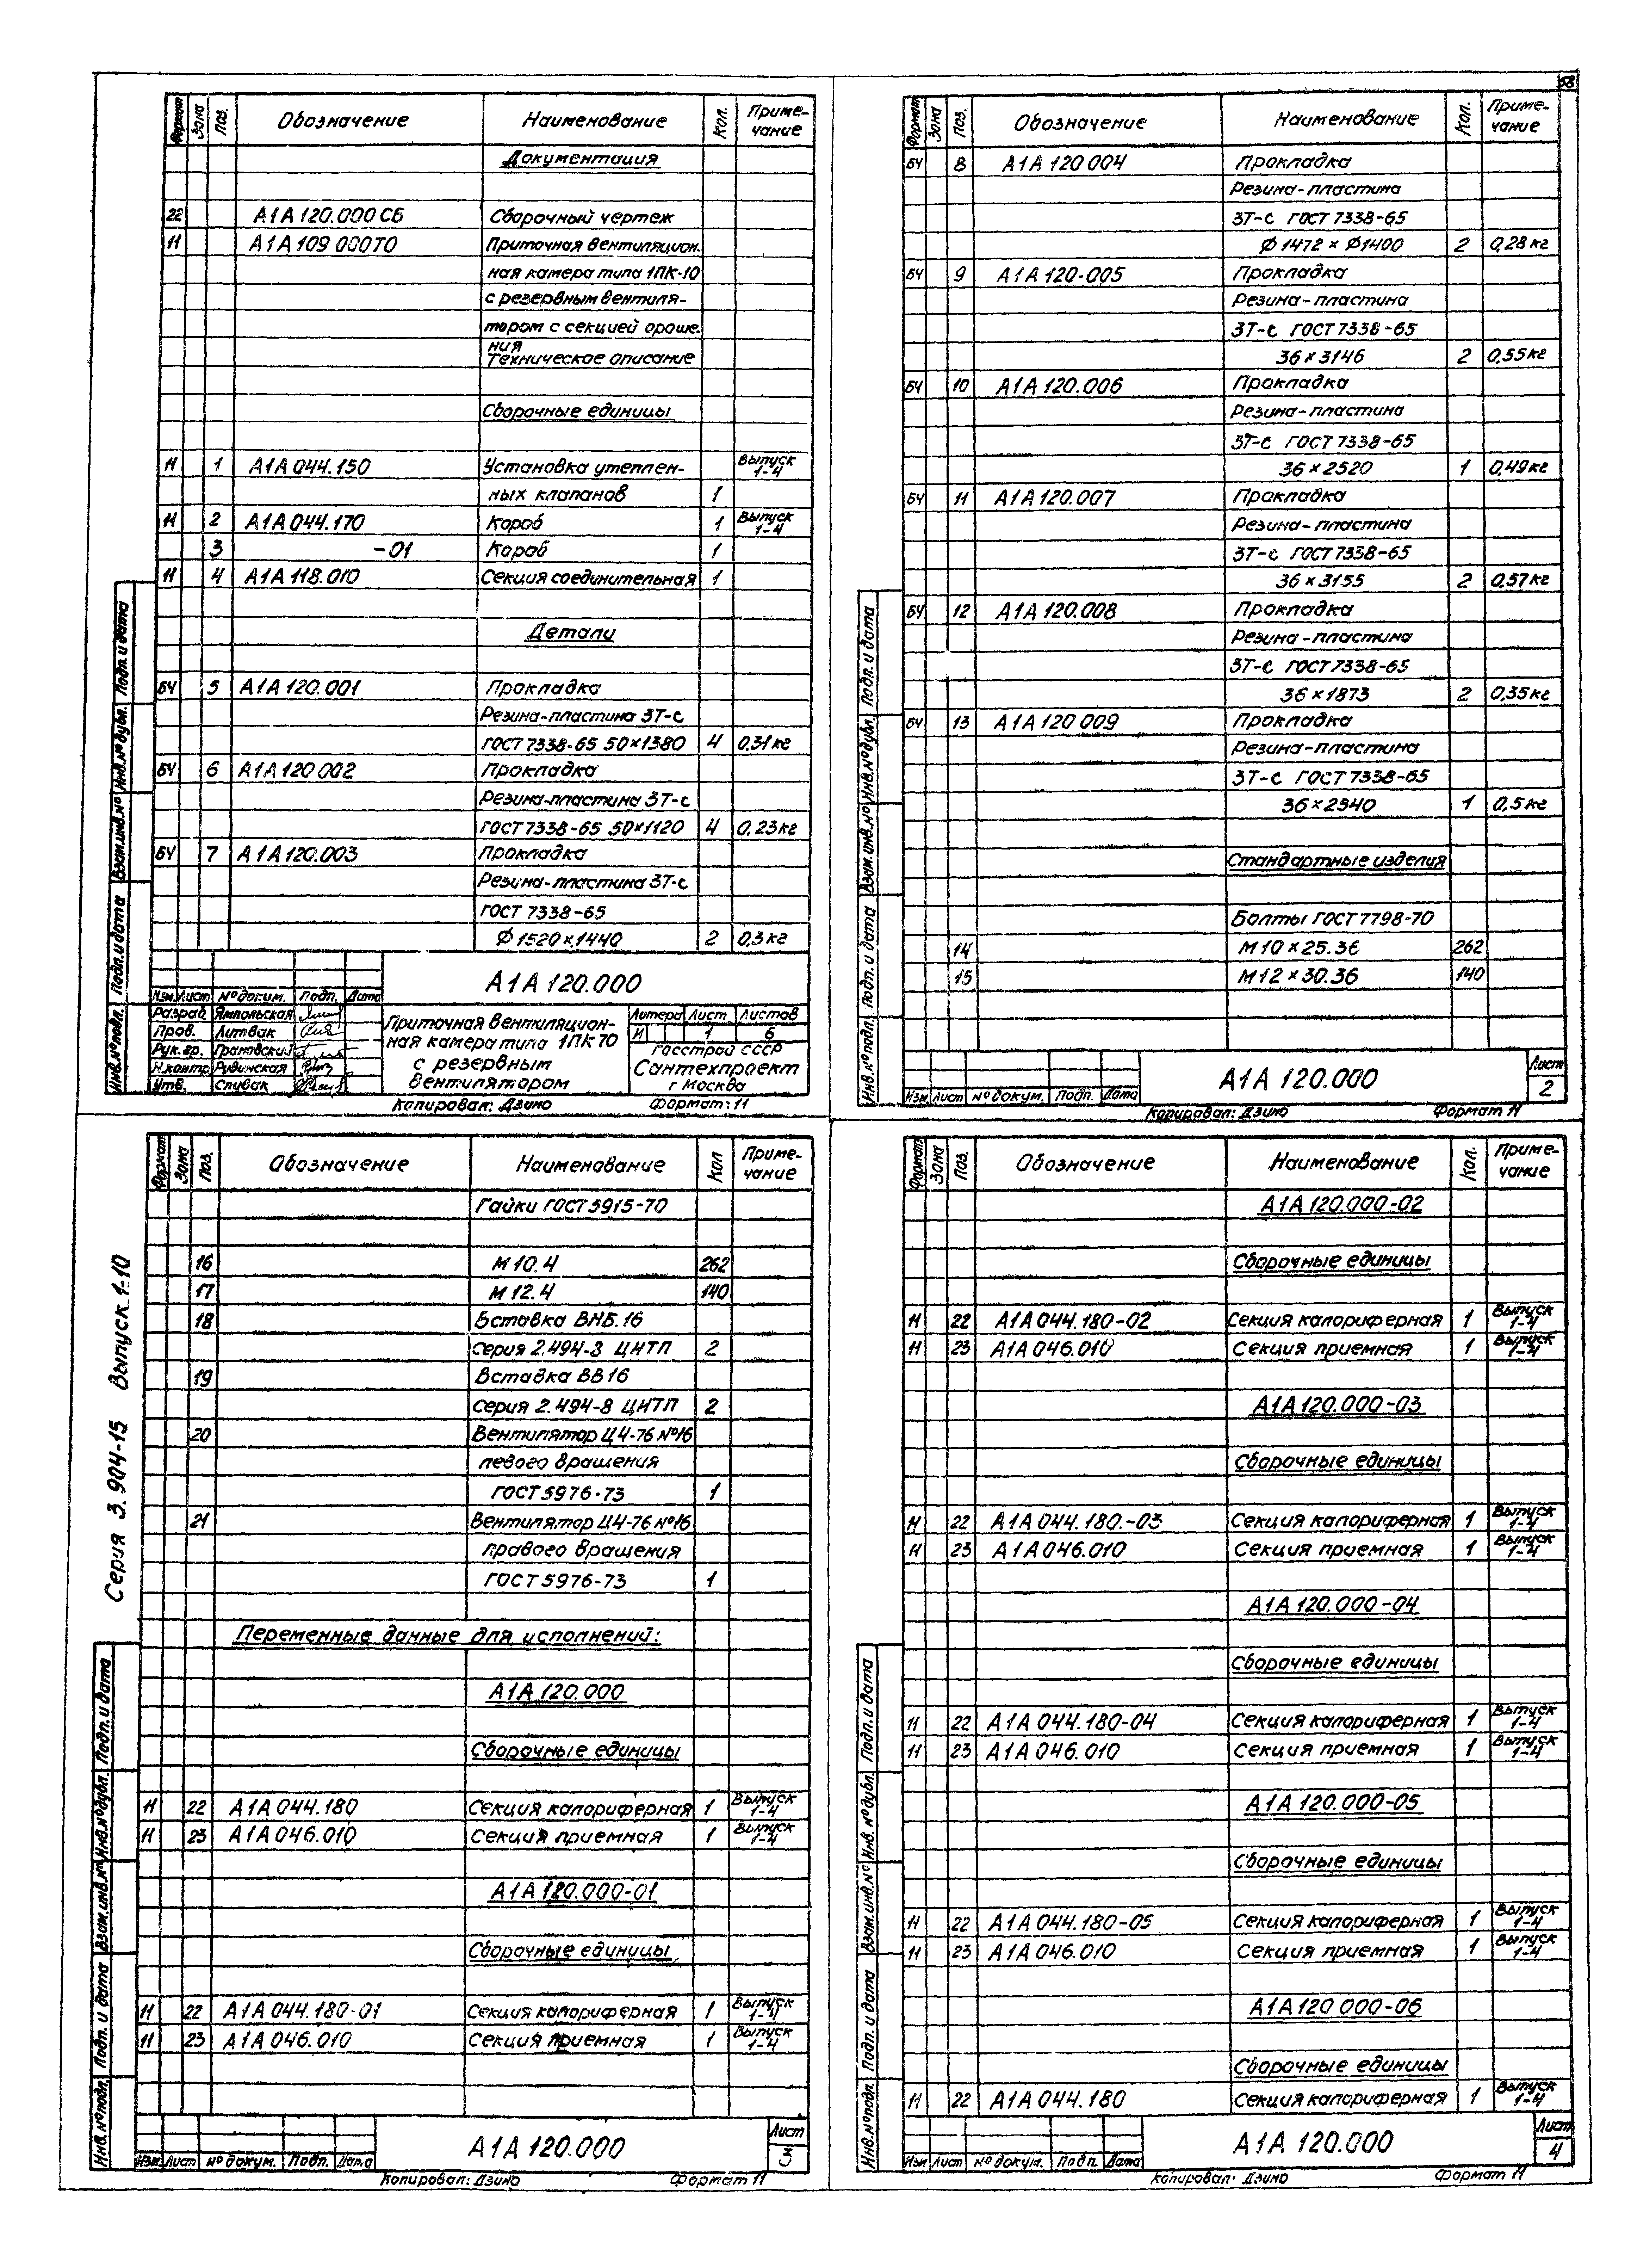 58
Формат Зона Поз. Обозначение Наименование Кол. Приме-
чание
Документация
22 А1А 120.000 СБ Сборочный чертеж
11 А1А 109 000ТО Приточная вентиляцион.
ная камера типа 1ПК-10
с резервным вентиля-
тором с секцией ороше.
ния
Техническое описание
Сборочные единицы
11 1 А1А 044.150 Установка утеплен- Выпуск
1-4
ных клапанов 1
11 2 А1А 044.170 Короб 1 Выпуск
1-4
3 -01 Короб 1
11 4 А1А 118.010 Секция соединительная 1
Детали
БЧ 5 А1А 120.001 Прокладка
Резина-пластина 3Т-с
ГОСТ 7338-65 50×1380 4 0,31кг
БЧ 6 А1А 120.002 Прокладка
Резина-пластина 3Т-с
ГОСТ 7338-65 50×1120 4 0,23кг
БЧ 7 А1А 120.003 Прокладка
Резина-пластина 3Т-с
ГОСТ 7338-65
Ф 1520×1440 2 0,3кг
Инв.№подл. Подп. и дата Взам.инв.№ Инв.№дубл. Подп. и дата
А1А 120.000
Изм. Лист № докум. Подп. Дата
Разраб. Ямпольская
Пров. Литвак
Рук. гр. Грановский
Н.контр. Рувинская
Утв. Спивак
Приточная вентиляцион-
ная камера типа 1ПК 70
с резервным
вентилятором
Литера Лист Листов
И 1 6
Госстрой СССР
Сантехпроект
г Москва
Копировал: Дзино Формат: 11
Формат Зона Поз. Обозначение Наименование Кол. Приме-
чание
БЧ 8 А1А 120 004 Прокладка
Резина-пластина
3Т-с ГОСТ 7338-65
Ф 1472 × Ф1400 2 0,28кг
БЧ 9 А1А 120-005 Прокладка
Резина-пластина
3Т-с ГОСТ 7338-65
36×3146 2 0,55кг
БЧ 10 А1А 120.006 Прокладка
Резина-пластина
3Т-с ГОСТ 7338-65
36×2520 1 0,49кг
БЧ 11 А1А 120.007 Прокладка
Резина-пластина
3Т-с ГОСТ 7338-65
36×3155 2 0,57кг
БЧ 12 А1А 120.008 Прокладка
Резина-пластина
3Т-с ГОСТ 7338-65
36×1873 2 0,35кг
БЧ 13 А1А 120 009 Прокладка
Резина-пластина
3Т-с ГОСТ 7338-65
36×2540 1 0,5кг
Стандартные изделия
Болты ГОСТ 7798-70
14 М10×25.36 262
15 М12×30.36 140
Инв.№подл. Подп. и дата Взам.инв.№ Инв.№дубл. Подп. и дата
А1А 120.000
Лист
2
Изм Лист № докум. Подп. Дата
Копировал: Дзино Формат 11
Серия 3.904-15 Выпуск 1-10
Формат Зона Поз. Обозначение Наименование Кол Приме-
чание
Гайки ГОСТ 5915-70
16 М 10.4 262
17 М 12.4 140
18 Вставка ВНБ.16
серия 2.494-8 ЦИТП 2
19 Вставка ВВ16
серия 2.494-8 ЦИТП 2
20 Вентилятор Ц4-76 №16
левого вращения
ГОСТ 5976-73 1
21 Вентилятор Ц4-76 №16
правого вращения
ГОСТ 5976-73 1
Переменные данные для исполнений:
А1А 120.000
Сборочные единицы
11 22 А1А 044.180 Секция калориферная 1 Выпуск
1-4
11 23 А1А 046.010 Секция приемная 1 Выпуск
1-4
А1А 120.000-01
Сборочные единицы
11 22 А1А 044.180-01 Секция калориферная 1 Выпуск
1-4
11 23 А1А 046.010 Секция приемная 1 Выпуск
1-4
Инв.№подл. Подп. и дата Взам.инв.№ Инв.№дубл. Подп. и дата
А1А 120.000
Лист
3
Изм. Лист № докум. Подп. Дата
Копировал: Дзино Формат 11
Формат Зона Поз. Обозначение Наименование Кол. Приме-
чание
А1А 120.000-02
Сборочные единицы
11 22 А1А 044.180-02 Секция калориферная 1 Выпуск
1-4
11 23 А1А 046.010 Секция приемная 1 Выпуск
1-4
А1А 120.000-03
Сборочные единицы
11 22 А1А 044.180.-03 Секция калориферная 1 Выпуск
1-4
11 23 А1А 046.010 Секция приемная 1 Выпуск
1-4
А1А 120.000-04
Сборочные единицы
11 22 А1А 044.180-04 Секция калориферная 1 Выпуск
1-4
11 23 А1А 046.010 Секция приемная 1 Выпуск
1-4
А1А 120.000-05
Сборочные единицы
11 22 А1А 044.180-05 Секция калориферная 1 Выпуск
1-4
11 23 А1А 046.010 Секция приемная 1 Выпуск
1-4
А1А 120 000-06
Сборочные единицы
11 22 А1А 044.180 Секция калориферная 1 Выпуск
1-4
Инв.№подл. Подп. и дата Взам.инв.№ Инв.№дубл. Подп. и дата
А1А 120.000
Лист
4
Изм Лист № докум. Подп. Дата
Копировал: Дзино Формат 11